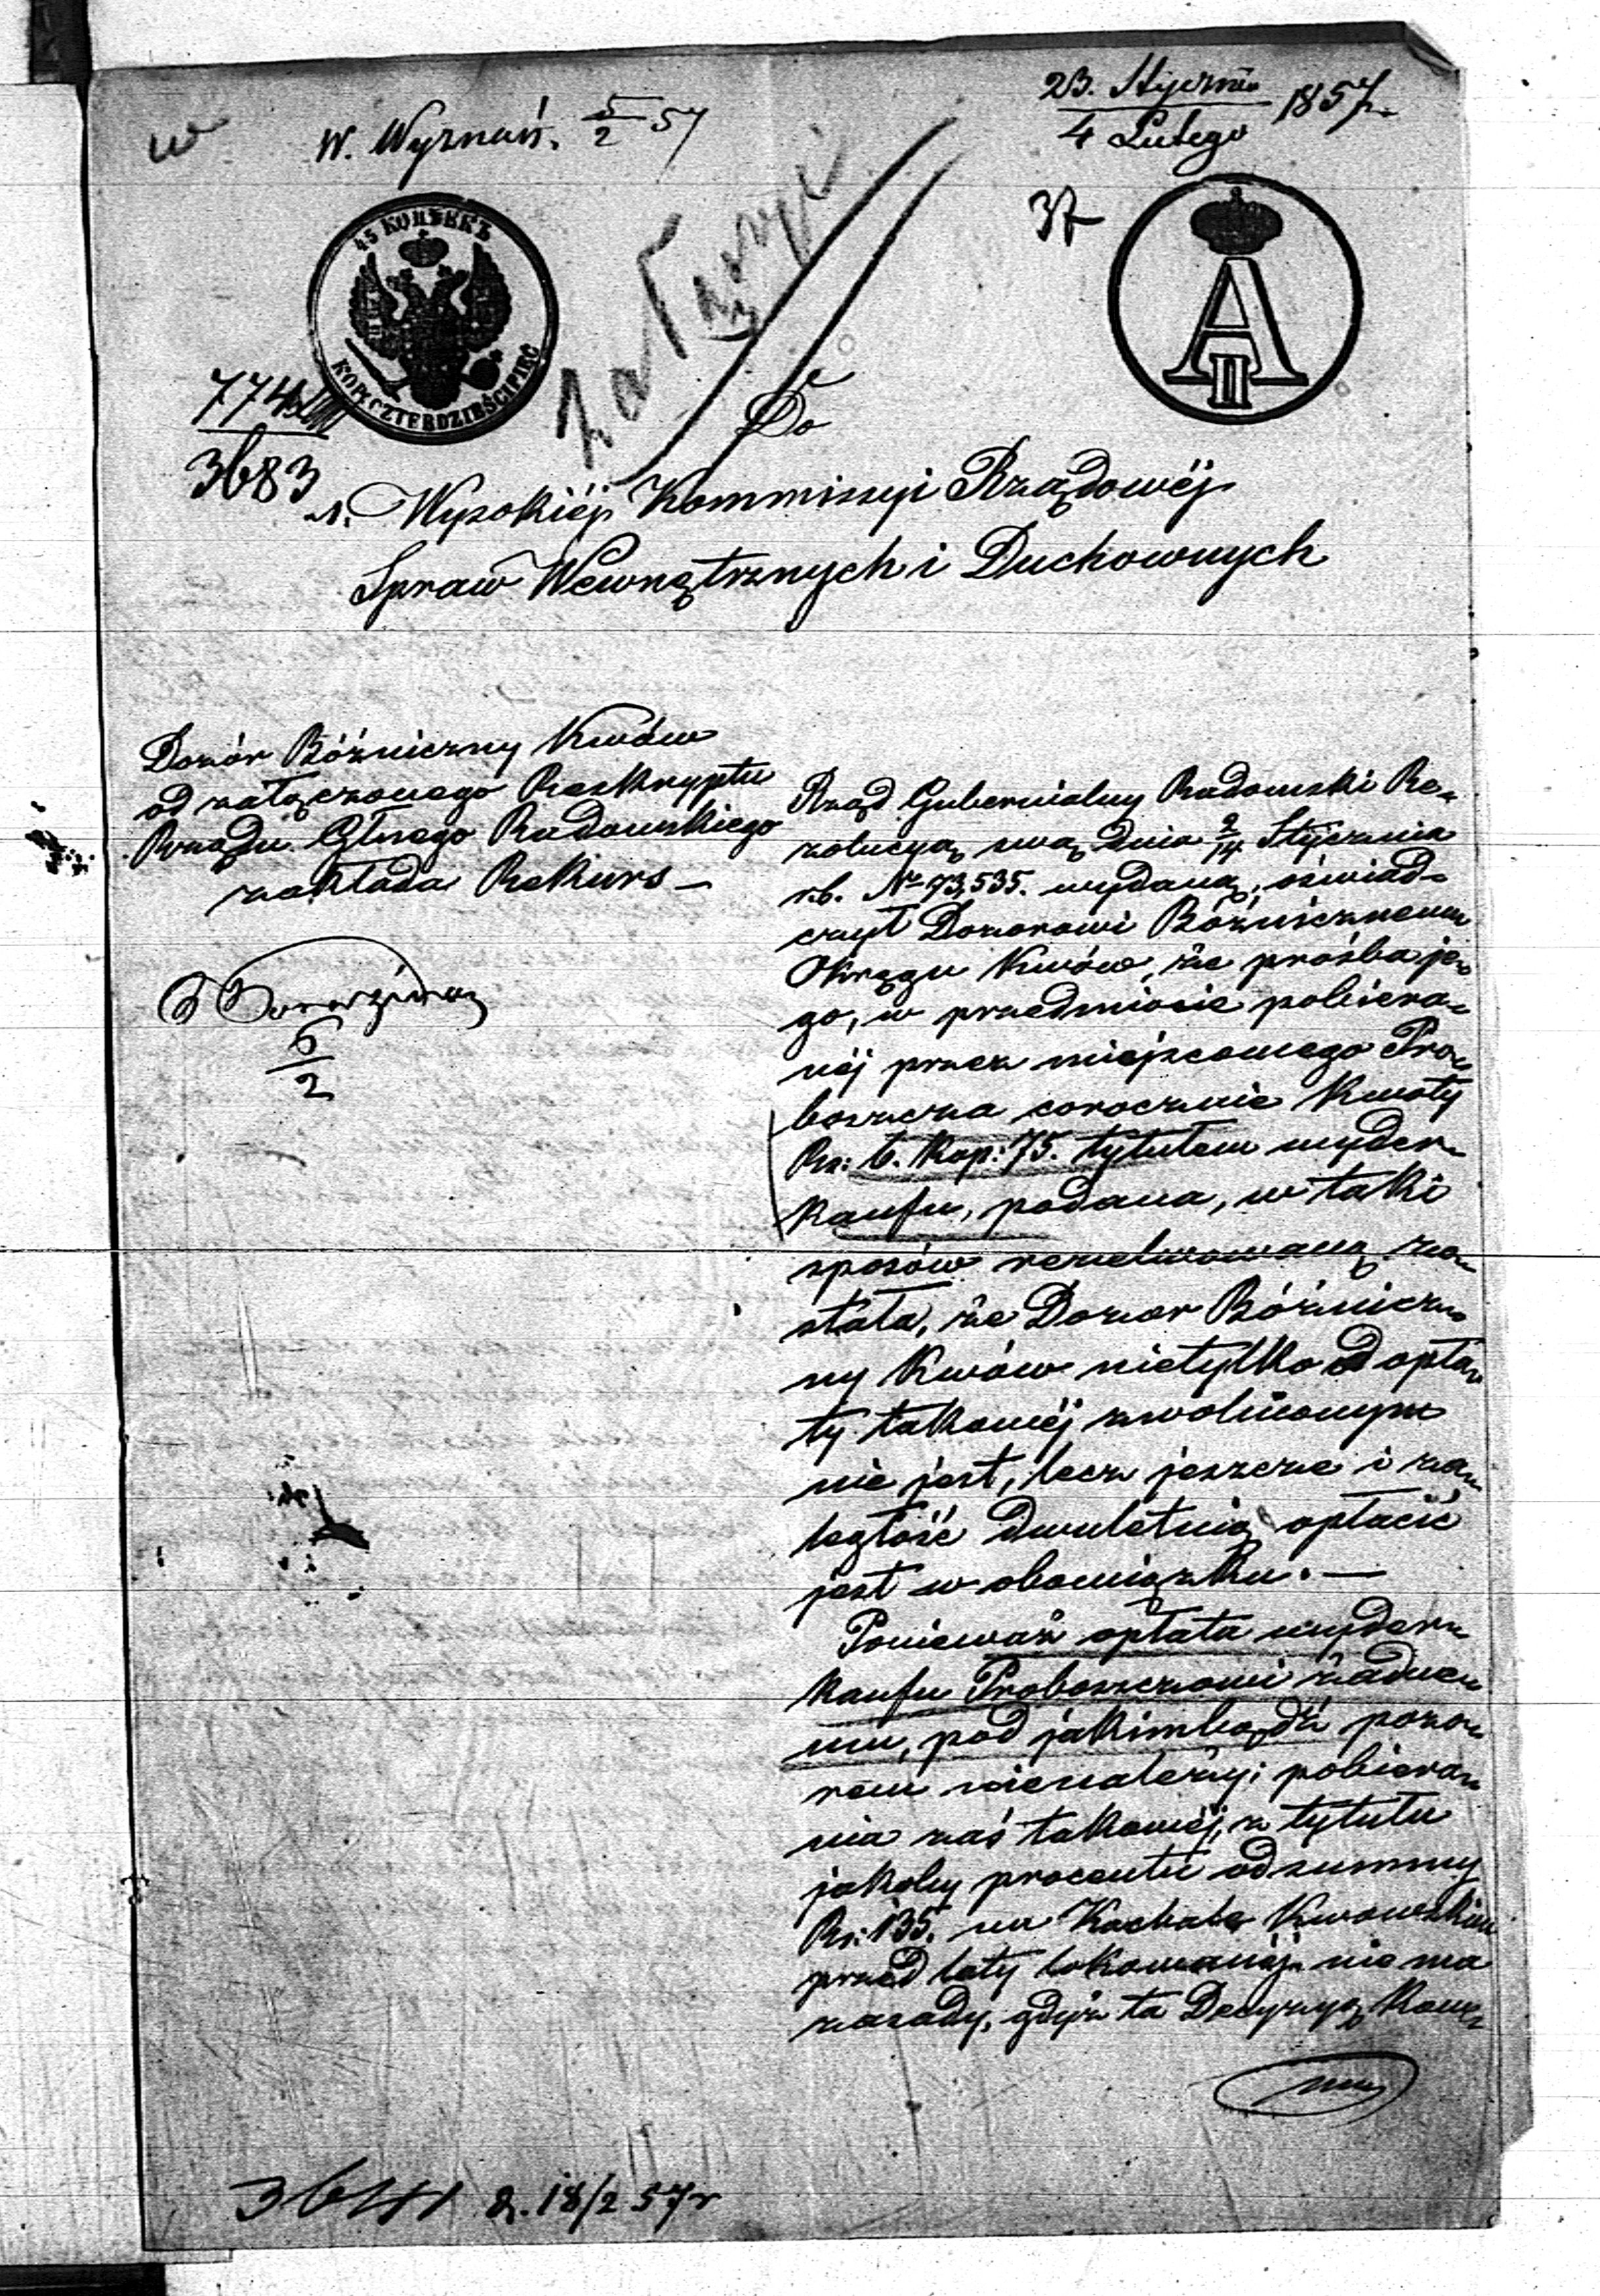 23. Stycznia
4 Lutego 1857 r.
W. Wyznań. 5/2 57
37
45 КОПѢЕКЪ
KOP. CZTERDZIEŚCI PIĘĆ
A II
3683
Do
Wysokiéj Kommissyi Rządowéj
Spraw Wewnętrznych i Duchownych
Dozór Bóżniczny Kwów
od załączonego Reskryptu
Rządu Głnego Radomskiego
zakłada Rekurs —
6/2
Rząd Gubernialny Radomski Re-
zolucyą swą dnia 2/14 Stycznia
r.b. No 73,535. wydaną, oświad-
czył Dozorowi Bóżnicznemu
Okręgu Kwów, że prośba je-
go, w przedmiocie pobiera-
néj przez miejscowego Pro-
boszcza corocznie kwoty
Rs: 6. Kop: 75. tytułem wyder-
kaufu, podana, w taki
sposów rezolwowaną zo-
stała, że Dozor Bóżnicz-
ny Kwów nietylko od opła-
ty takowéj zwolnionym
nie jest, lecz jeszcze i za-
ległość dwuletnią opłacić
jest w obowiązku. —
Ponieważ opłata wyder-
kaufu Proboszczowi żadne-
mu, pod jakimbądź pozo-
rem nienależy; pobiera-
nia zaś takowéj, z tytułu
jakoby procentu od summy
Rs: 135. na Kachale Kwowskim
przed laty lokowanéj nie ma
zasady, gdyż ta Decyzyą Kom-
3641 d. 18/2 57 r